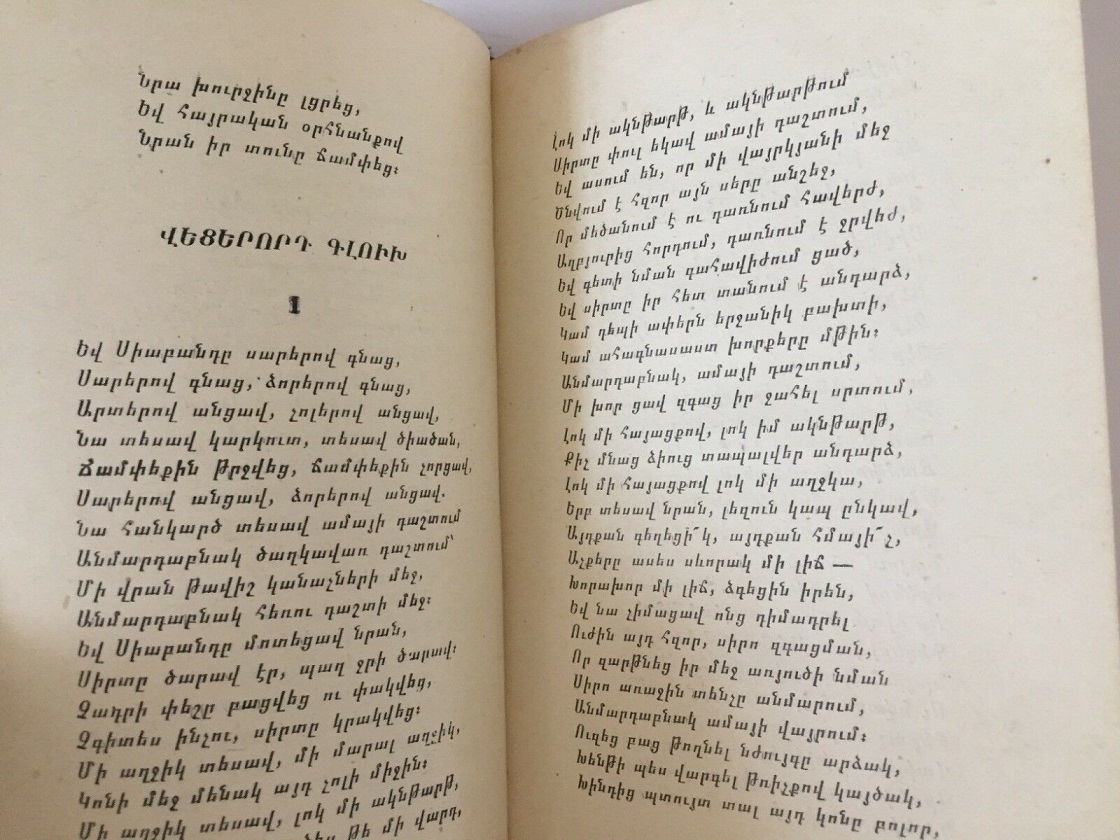 Նրա խուրջինը լցրեց,
Եվ հայրական օրհնանքով
Նրան իր տունը ճամփեց։
ՎԵՑԵՐՈՐԴ ԳԼՈՒԽ
1
Եվ Սիաբանդը սարերով գնաց,
Սարերով գնաց, ձորերով գնաց,
Արտերով անցավ, չոլերով անցավ,
Նա տեսավ կարկուտ, տեսավ ծիածան,
Ճամփեքին թրջվեց, ճամփեքին չորցավ,
Սարերով անցավ, ձորերով անցավ.
Նա հանկարծ տեսավ ամայի դաշտում
Անմարդաբնակ ծաղկավառ դաշտում՝
Մի վրան թավիշ կանաչների մեջ,
Անմարդաբնակ հեռու դաշտի մեջ։
Եվ Սիաբանդը մոտեցավ նրան,
Սիրտը ծարավ էր, պաղ ջրի ծարավ։
Չադրի փեշը բացվեց ու փակվեց,
Չգիտես ինչու, սիրտը կրակվեց։
Մի աղջիկ տեսավ, մի մարալ աղջիկ,
Կոնի մեջ մենակ այդ չոլի միջին։
Մի աղջիկ տեսավ, լոկ մի ակնթարթ,
թե մի վարդ,
Լոկ մի ակնթարթ, և ակնթարթում
Սիրտը փուլ եկավ ամայի դաշտում,
Եվ ասում են, որ մի վայրկյանի մեջ
Ծնվում է հզոր այն սերը անշեջ,
Որ մեծանում է ու դառնում հավերժ,
Աղբյուրից հորդում, դառնում է ջրվեժ,
Եվ գետի նման գահավիժում ցած,
Եվ սիրտը իր հետ տանում է անդարձ,
Կամ դեպի ափերն երջանիկ բախտի,
Կամ ահագնասաստ խորքերը մթին։
Անմարդաբնակ, ամայի դաշտում,
Մի խոր ցավ զգաց իր ջահել սրտում,
Լոկ մի հայացքով, լոկ իմ ակնթարթ,
Քիչ մնաց ձիուց տապալվեր անդարձ,
Լոկ մի հայացքով լոկ մի աղջկա,
Երբ տեսավ նրան, լեզուն կապ ընկավ,
Այդքան գեղեցի՜կ, այդքան հմայի՜չ,
Աչքերը ասես սևորակ մի լիճ —
Խորախոր մի լիճ, ձգեցին իրեն,
Եվ նա չիմացավ ոնց դիմադրել
Ուժին այդ հզոր, սիրո զգացման,
Որ զարթնեց իր մեջ առյուծի նման
Սիրո առաջին տենչը անմարում,
Անմարդաբնակ ամայի վայրում։
Ուզեց բաց թողնել նժույգը արձակ,
Խենթի պես վարգել թռիչքով կայծակ,
Խինդից պտույտ տալ այդ կոնը բոլոր,